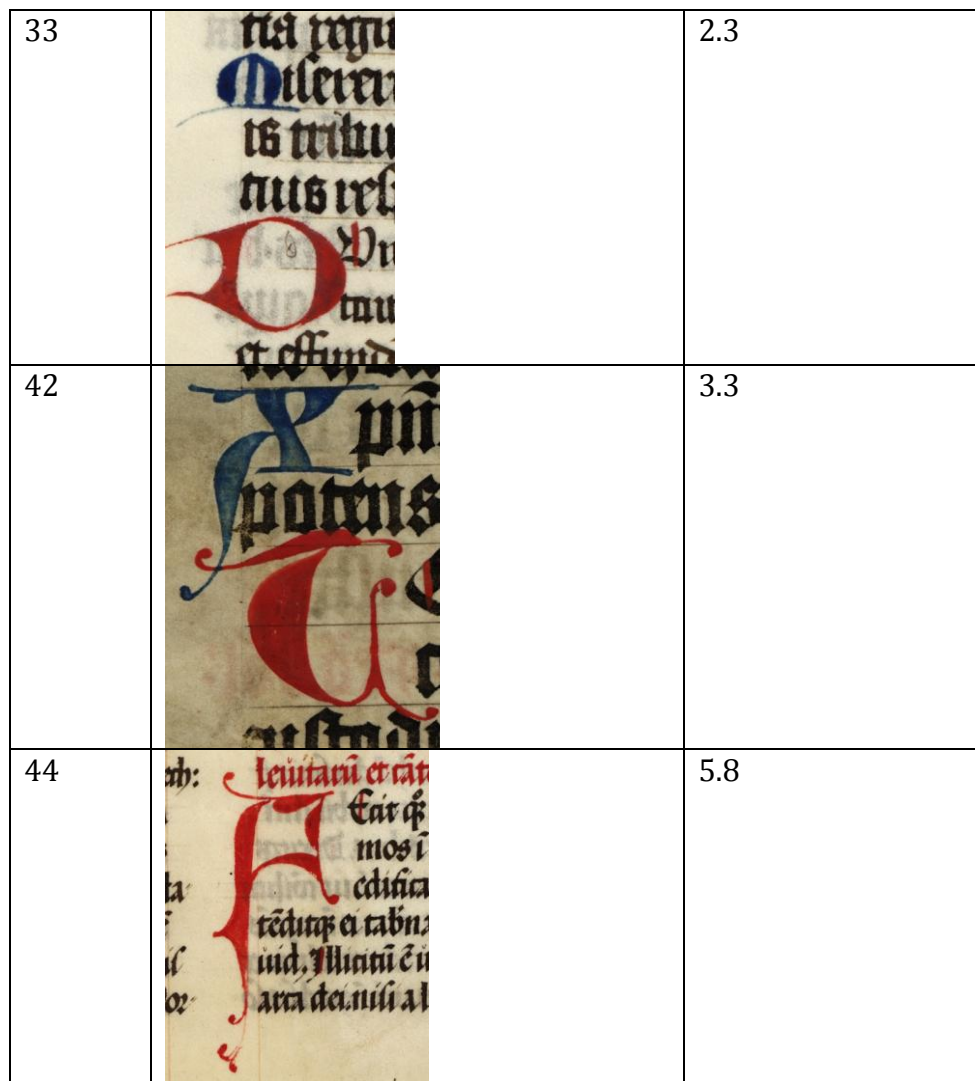 33
tia regn
Miserer
is tribu
tuis res
D Vu
tau
et effund
2.3
42
X pm̄
potens
U
c
custodi
3.3
44
leuitarū et cāt
F Ecit qꝫ
mos ī
edifica
tēditqꝫ ei tabn
uid. Illicitū ē u
arca dei nisi a l
5.8